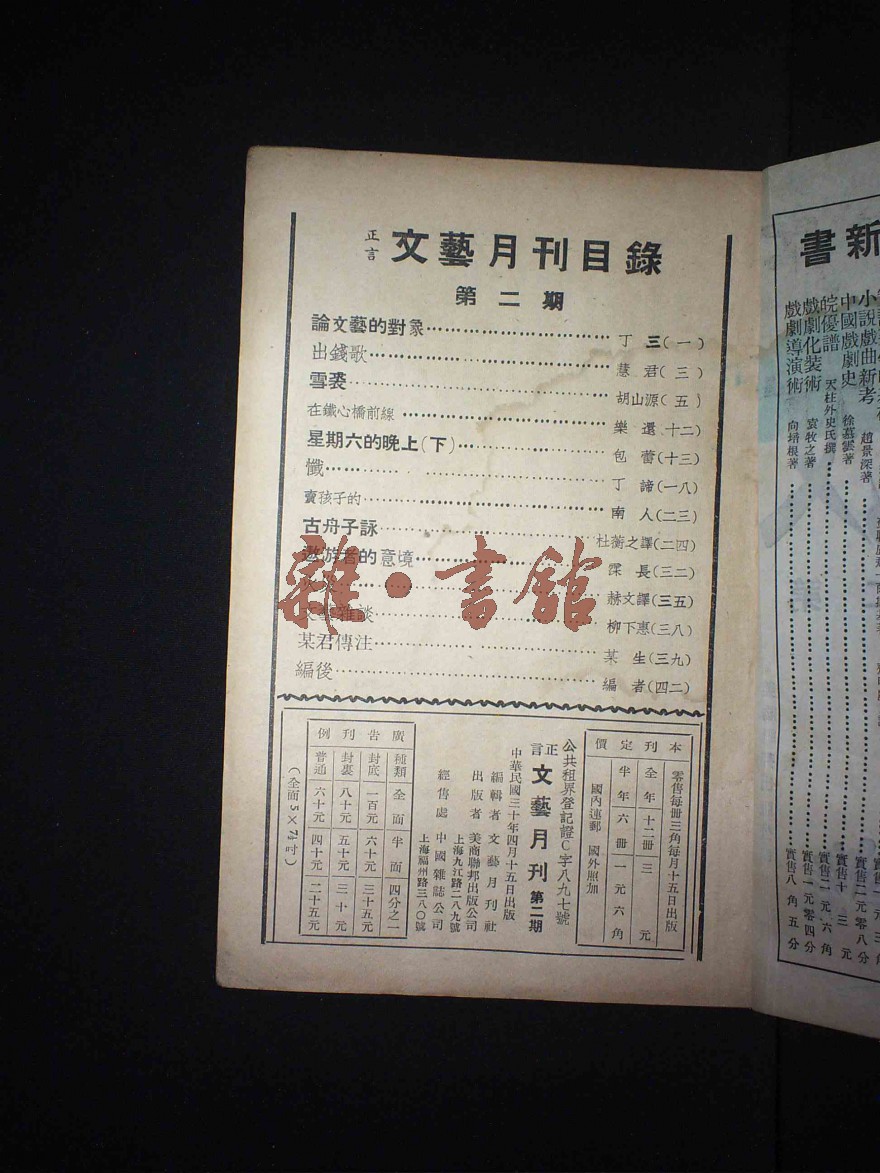 正言 文藝月刊目錄
第二期
論文藝的對象 丁三(一)
出錢歌 慧君(三)
雪裘 胡山源(五)
在鐵心橋前線 樂還 十二
星期六的晚上(下) 包蕾(十三)
懺 丁諦(一八)
賣孩子的 南人(二三)
古舟子詠 杜蘅之譯(二四)
遨游者的意境 霂長(三二)
赫文譯(三五)
文藝雜談 柳下惠(三八)
某君傳注 某生(三九)
編後 編者(四二)
雜·書館
本刊定價
零售每冊三角每月十五日出版
全年十二冊三元
半年六冊一元六角
國內連郵 國外照加
公共租界登記證C字八九七號
正言 文藝月刊 第二期
中華民國三十年四月十五日出版
編輯者 文藝月刊社
出版者 美商聯邦出版公司
上海九江路二八九號
經售處 中國雜誌公司
上海福州路三八〇號
廣告刊例
種類 全面 半面 四分之一
封底 一百元 六十元 三十五元
封裏 八十元 五十元 三十元
普通 六十元 四十元 二十五元
(全面5×7½吋)
新書
小說戲曲新考 趙景深著 實售二元零八分
中國戲劇史 徐慕雲著 實售十三元
皖優譜 天柱外史氏撰 實售二元六角
戲劇化裝術 袁牧之著 實售一元零四分
戲劇導演術 向培良著 實售八角五分